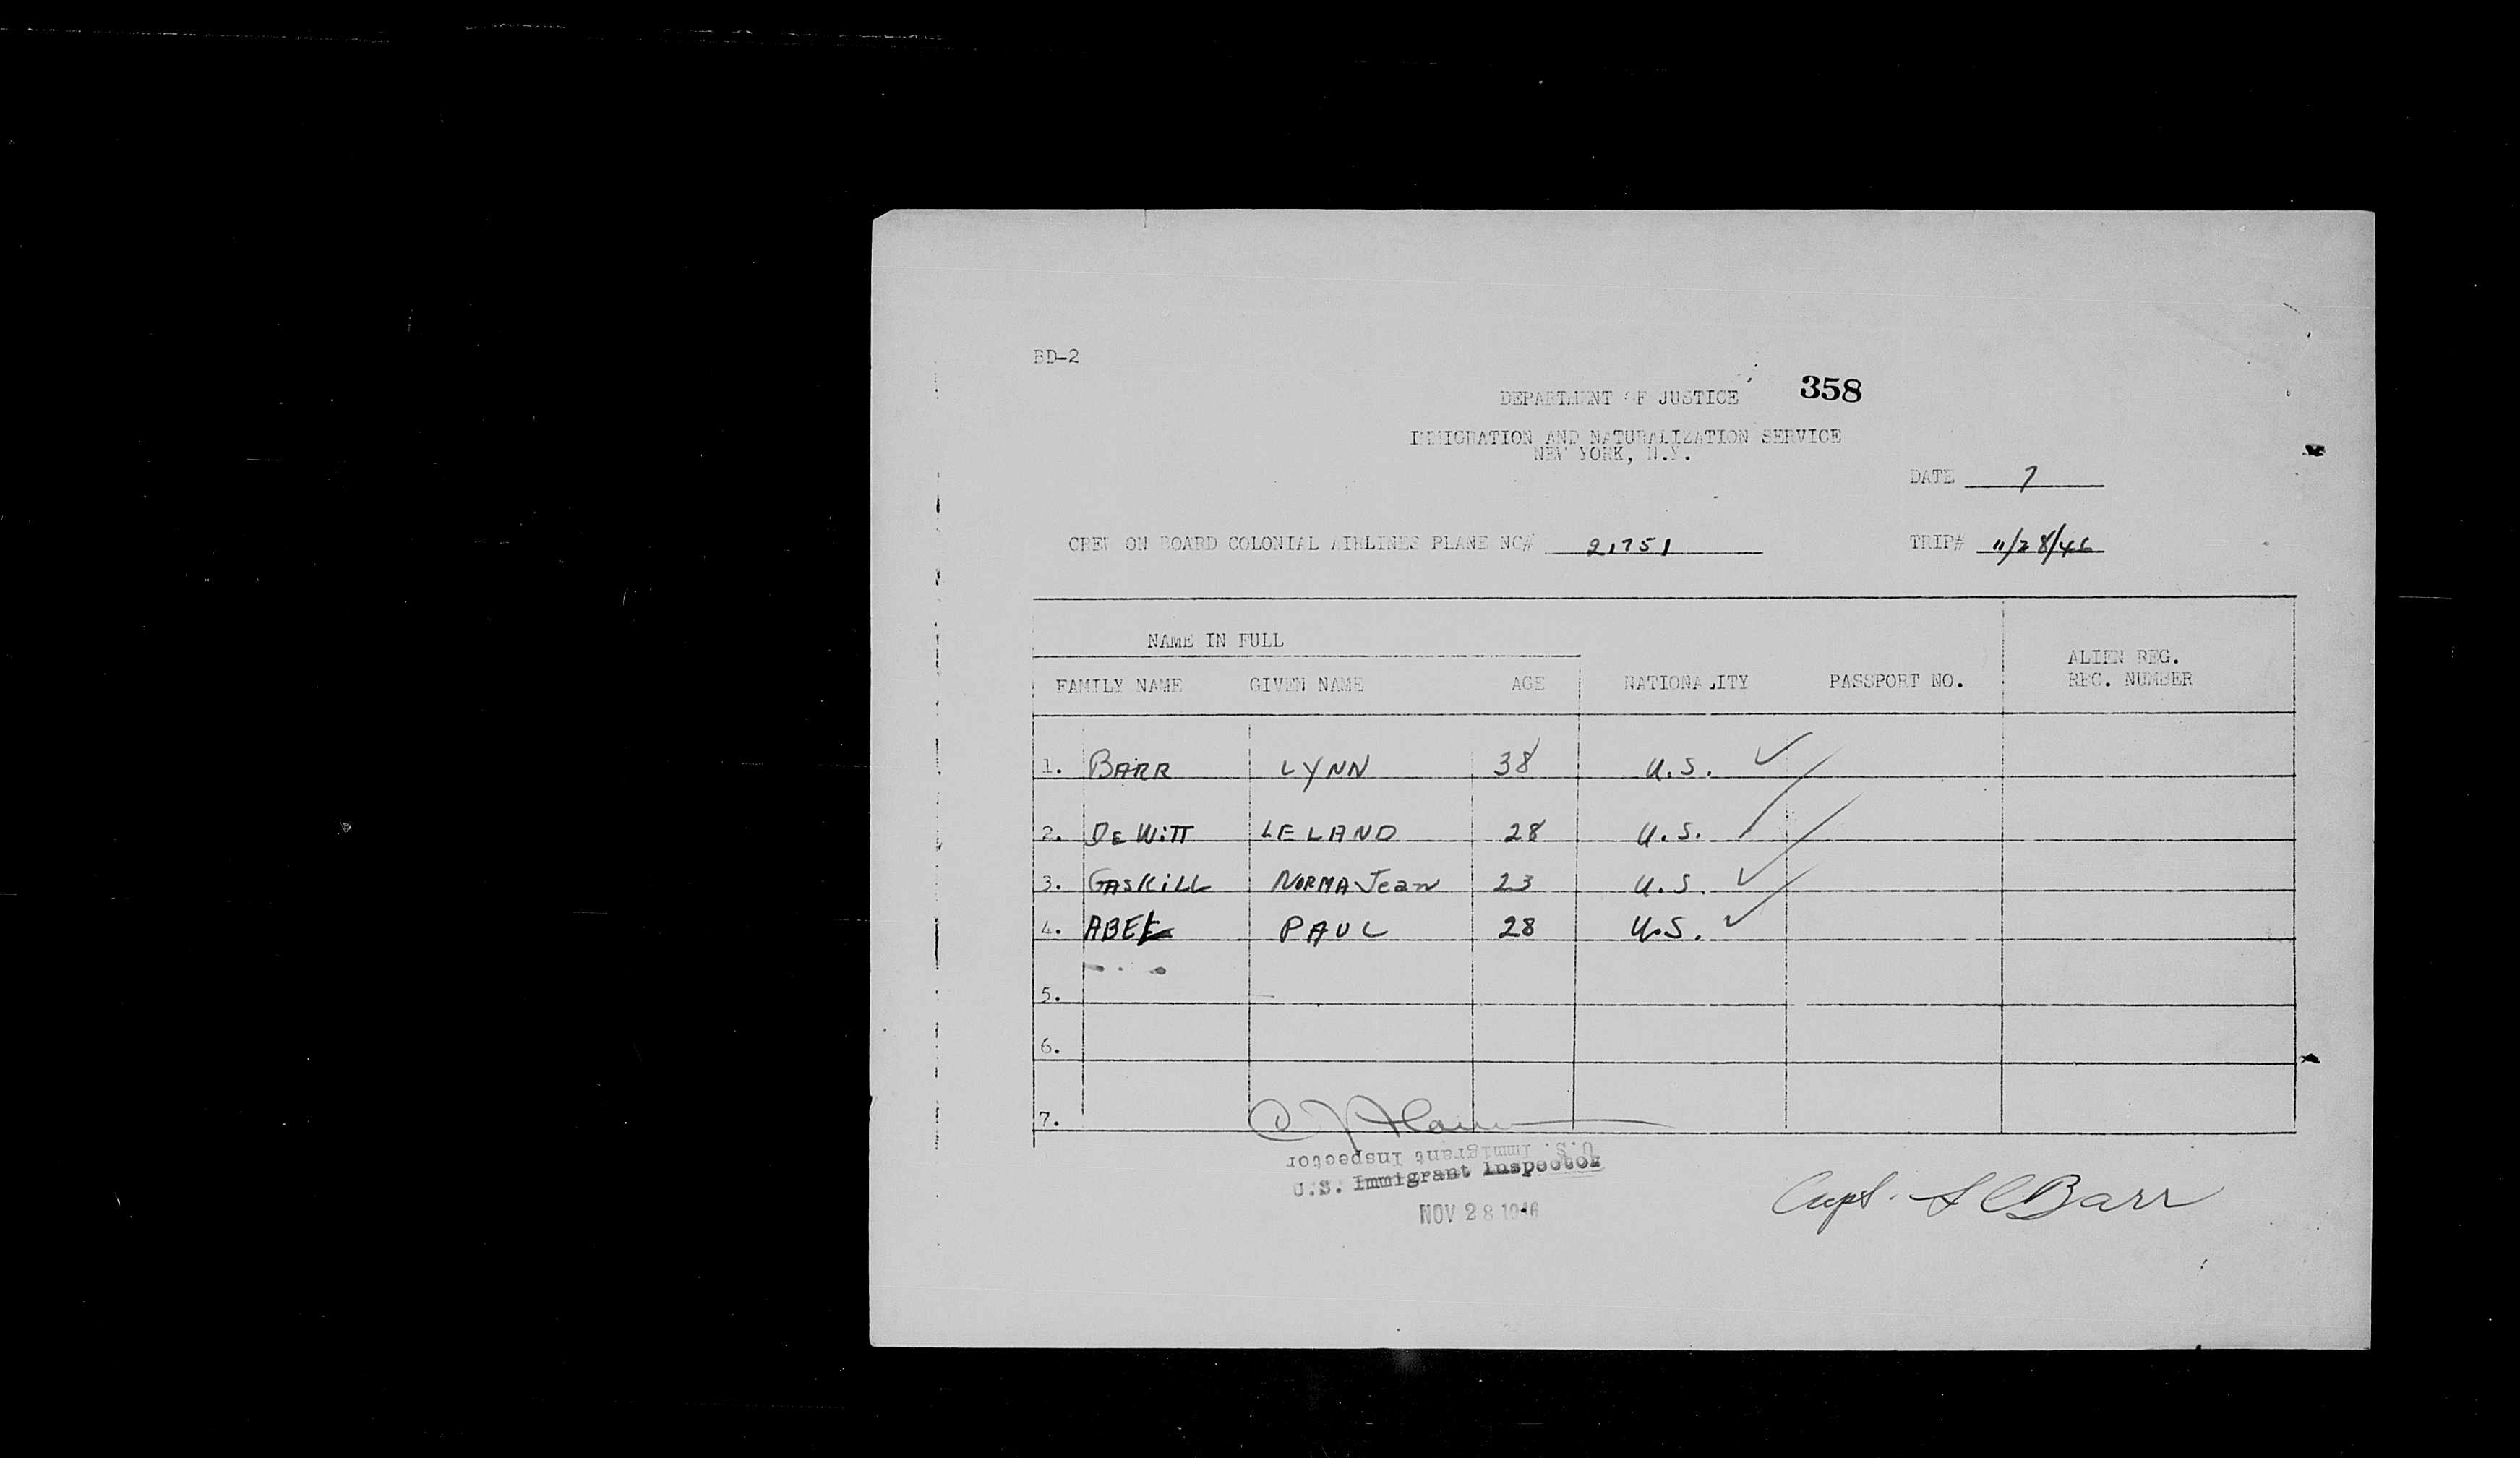 BD-2
DEPARTMENT OF JUSTICE 358
IMMIGRATION AND NATURALIZATION SERVICE
NEW YORK, N.Y.
DATE 7
CREW ON BOARD COLONIAL AIRLINES PLANE NC# 21751 TRIP# 11/28/46
NAME IN FULL
FAMILY NAME GIVEN NAME AGE NATIONALITY PASSPORT NO. ALIEN REG. REC. NUMBER
1. BARR LYNN 38 U.S. ✓
2. DEWITT LELAND 28 U.S. ✓
3. GASKILL NORMA Jean 23 U.S. ✓
4. ABEL PAUL 28 U.S. ✓
5.
6.
7.
U.S. Immigrant Inspector
U.S. Immigrant Inspector
NOV 28 1946
Capt. L C Barr